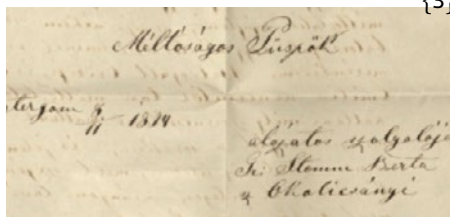 Méltóságos Püspök
tergom 9/11 1874
alázatos szolgálója
Stemme Berta
Okolicsányi